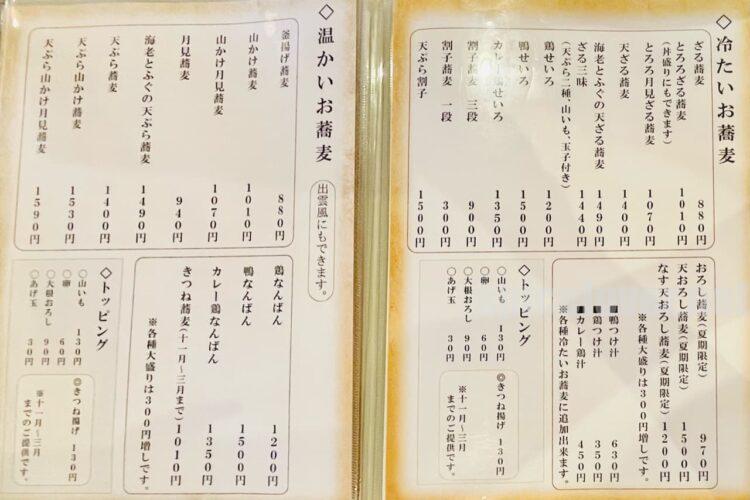 ◇冷たいお蕎麦
ざる蕎麦 880円
とろろざる蕎麦 1010円
(丼盛りにもできます)
とろろ月見ざる蕎麦 1070円
天ざる蕎麦 1400円
海老とふぐの天ざる蕎麦 1490円
ざる三味 1440円
(天ぷら二種、山いも、玉子付き)
鶏せいろ 1200円
鴨せいろ 1500円
カレー鶏せいろ 1350円
割子蕎麦 三段 900円
割子蕎麦 一段 300円
天ぷら割子 1500円
おろし蕎麦(夏期限定) 970円
天おろし蕎麦(夏期限定) 1500円
なす天おろし蕎麦(夏期限定) 1200円
※各種大盛りは300円増しです。
鴨つけ汁 630円
鶏つけ汁 350円
カレー鶏汁 450円
※各種冷たいお蕎麦に追加出来ます。
◇トッピング
○山いも 130円
○卵 60円
○大根おろし 90円
○あげ玉 30円
◎きつね揚げ 130円
※十一月~三月
までのご提供です。
◇温かいお蕎麦
出雲風にもできます。
釜揚げ蕎麦 880円
山かけ蕎麦 1010円
山かけ月見蕎麦 1070円
月見蕎麦 940円
海老とふぐの天ぷら蕎麦 1490円
天ぷら蕎麦 1400円
天ぷら山かけ蕎麦 1530円
天ぷら山かけ月見蕎麦 1590円
鶏なんばん 1200円
鴨なんばん 1500円
カレー鶏なんばん 1350円
きつね蕎麦(十一月~三月まで) 1010円
※各種大盛りは300円増しです。
◇トッピング
○山いも 130円
○卵 60円
○大根おろし 90円
○あげ玉 30円
◎きつね揚げ 130円
※十一月~三月
までのご提供です。